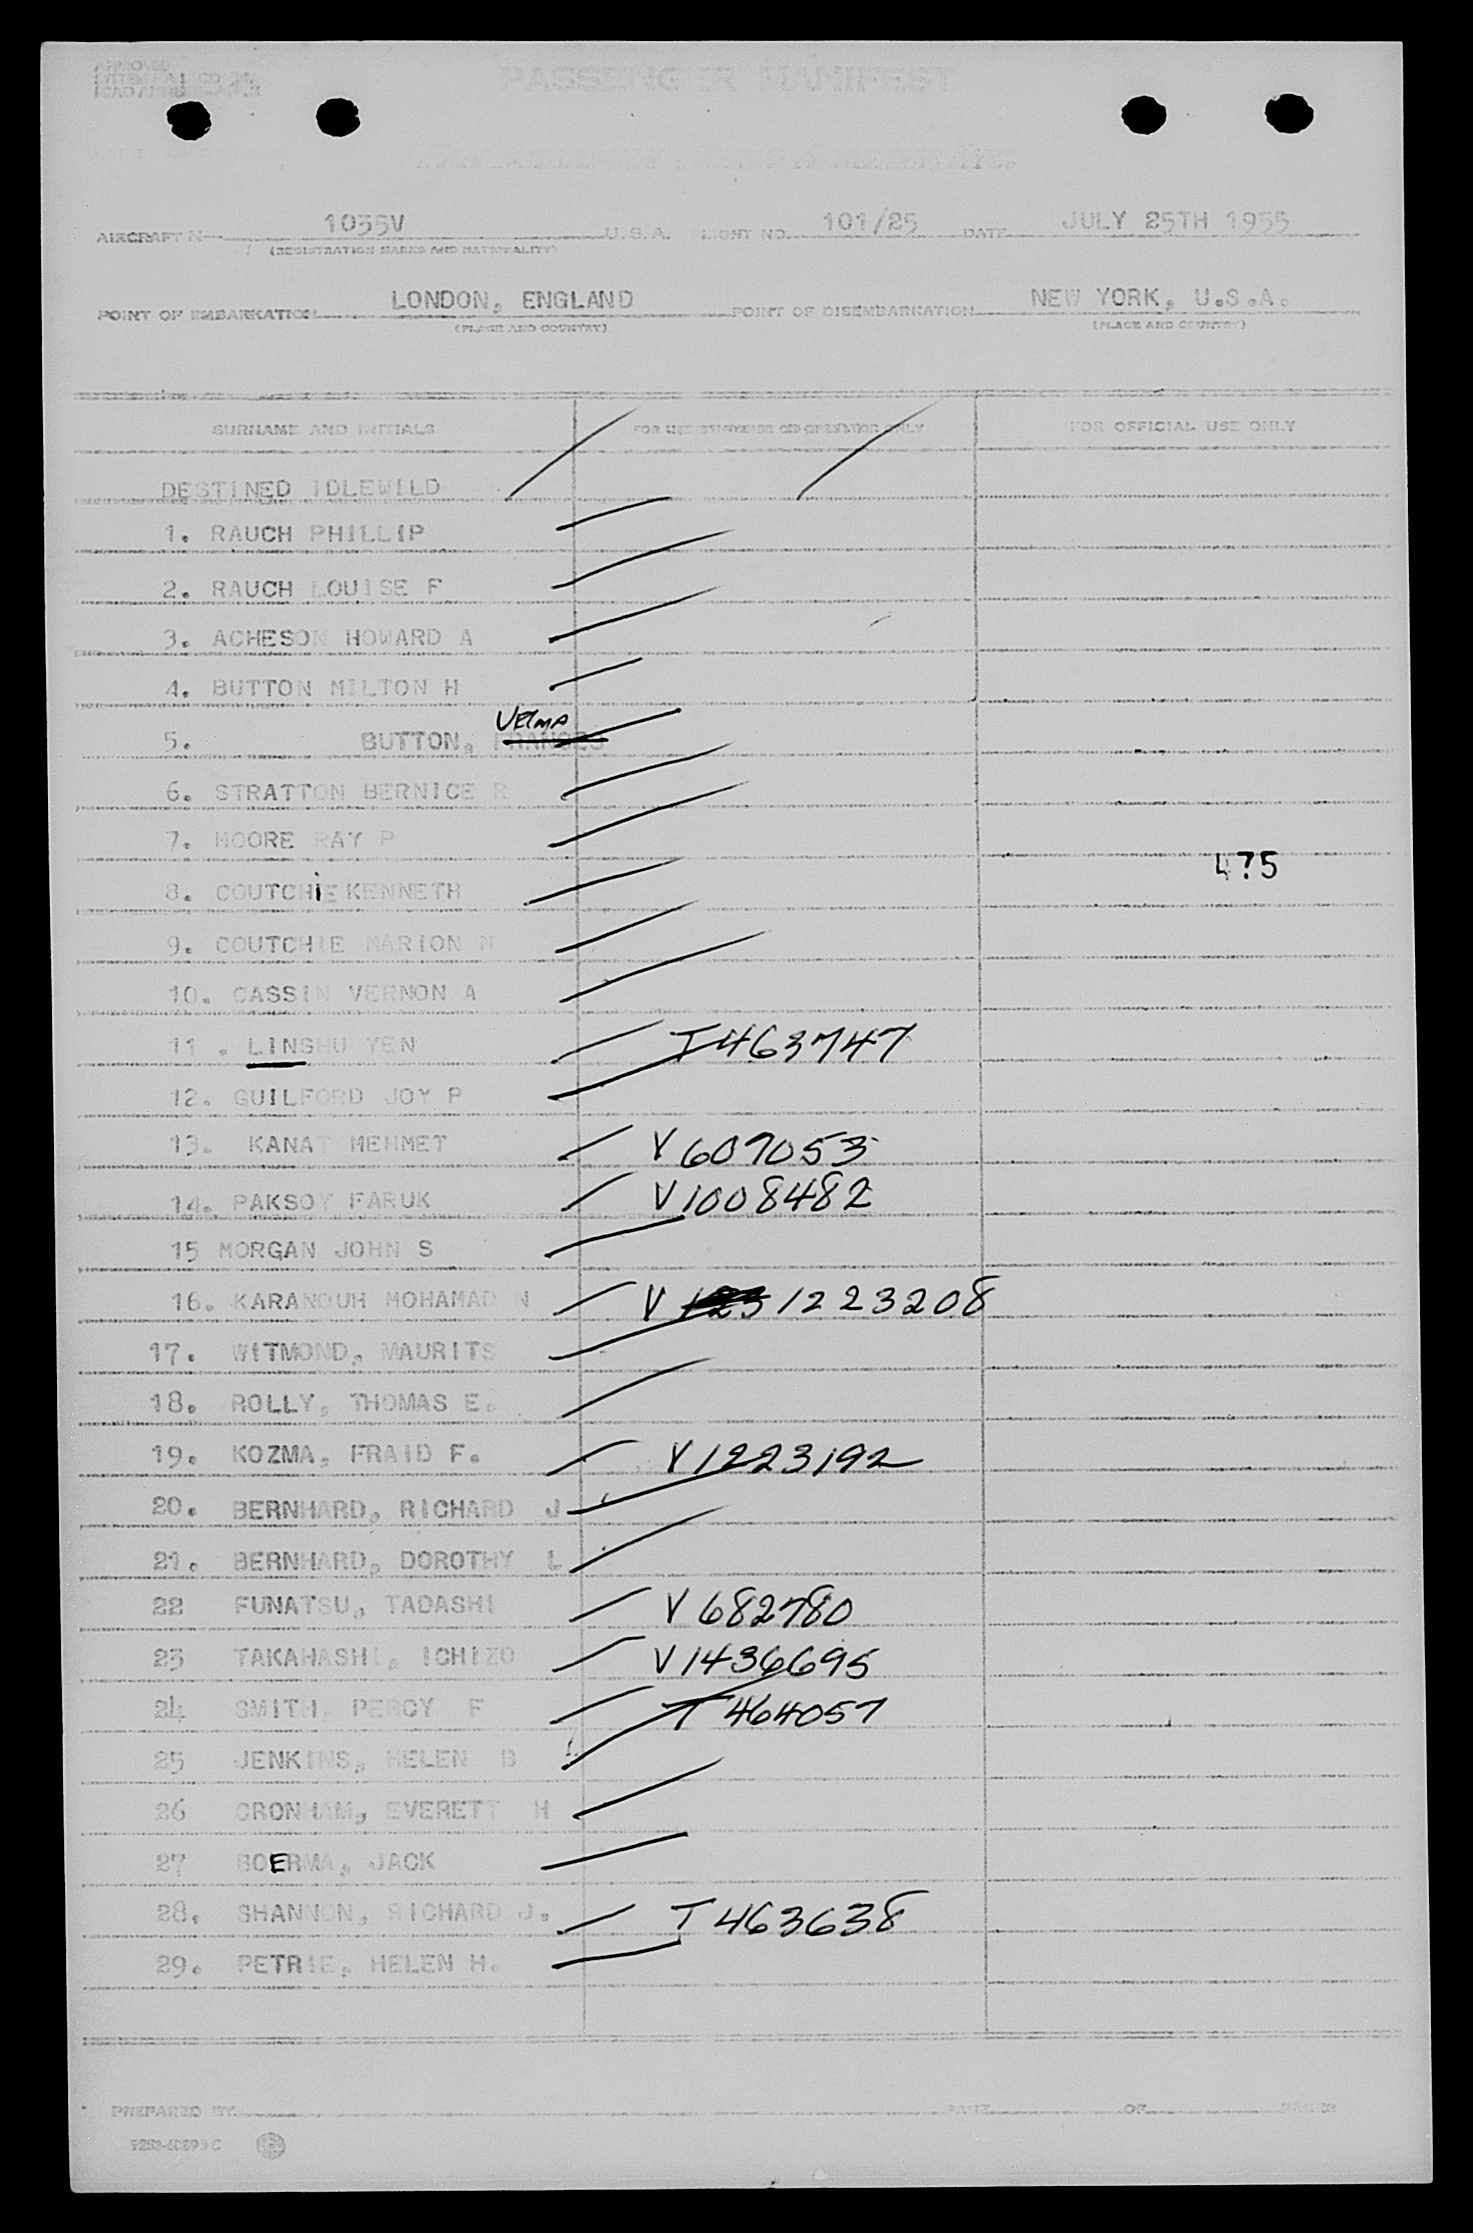 PASSENGER MANIFEST
AIRCRAFT N 1035V U.S.A. FLIGHT NO. 101/25 DATE JULY 25TH 1955
(REGISTRATION MARKS AND NATIONALITY)
POINT OF EMBARKATION LONDON, ENGLAND POINT OF DISEMBARKATION NEW YORK, U.S.A.
(PLACE AND COUNTRY) (PLACE AND COUNTRY)
SURNAME AND INITIALS FOR USE BY OWNER OR OPERATOR ONLY FOR OFFICIAL USE ONLY
DESTINED IDLEWILD
1. RAUCH PHILLIP
2. RAUCH LOUISE F
3. ACHESON HOWARD A
4. BUTTON MILTON H
VELMA
5. BUTTON, FRANCES
6. STRATTON BERNICE R
7. MOORE RAY P
475
8. COUTCHiE KENNETH
9. COUTCHIE MARION M
10. CASSIN VERNON A
11 . LINSHU YEN T463747
12. GUILFORD JOY P
13. KANAT MEHMET V607053
14. PAKSOY FARUK V1008482
15 MORGAN JOHN S
16. KARANOUH MOHAMAD N V 123 1223208
17. WITMOND, MAURITS
18. ROLLY, THOMAS E.
19. KOZMA, FRAID F. V1223192
20. BERNHARD, RICHARD J
21. BERNHARD, DOROTHY L
22 FUNATSU, TADASHI V 682780
23 TAKAHASHI, ICHIZO V1436695
24 SMITH, PERCY F T 464057
25 JENKINS, HELEN B
26 CRONHAM, EVERETT H
27 BOERMA, JACK
28. SHANNON, RICHARD J. T 463638
29. PETRIE, HELEN H.
PREPARED BY PAGE OF PAGES